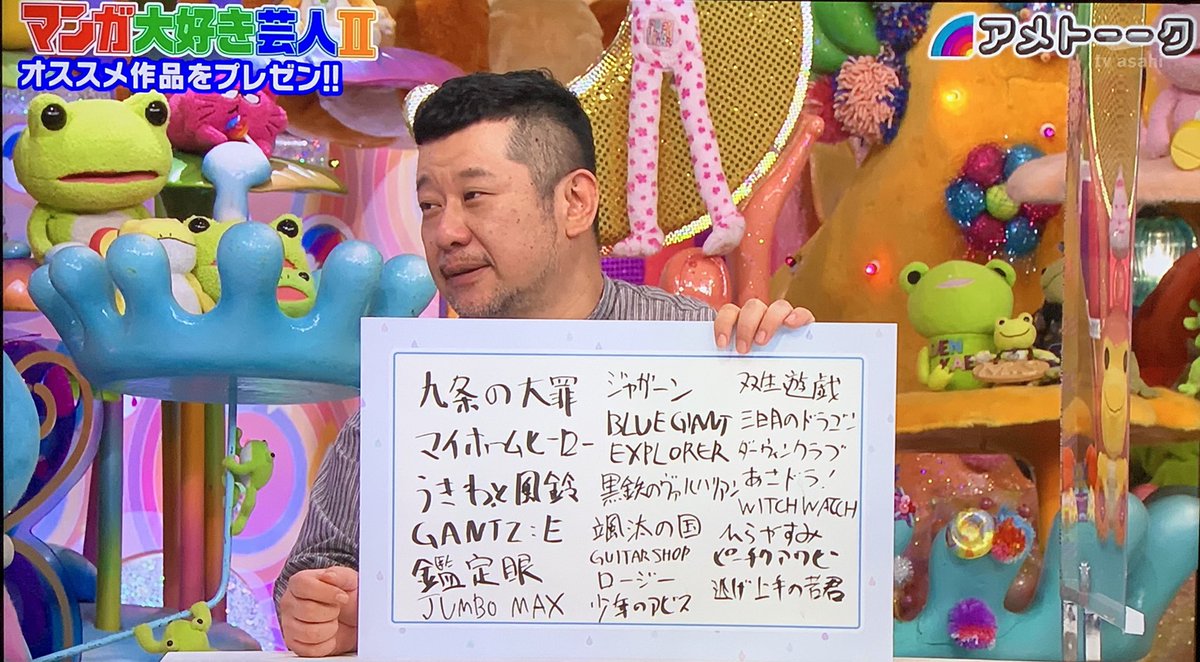 マンガ大好き芸人II
オススメ作品をプレゼン!!
アメトーーク
tv asahi
九条の大罪
マイホームヒーロー
うきわと風鈴
GANTZ:E
鑑定眼
JUMBO MAX
ジャガーン
BLUE GIANT
EXPLORER
黒鉄のヴァルハリアン
颯汰の国
GUITAR SHOP
ロージー
少年のアビス
双生遊戯
三日月のドラゴン
ダーウィンクラブ
あさドラ!
WITCH WATCH
ひらやすみ
ピーチクアワビ
逃げ上手の若君